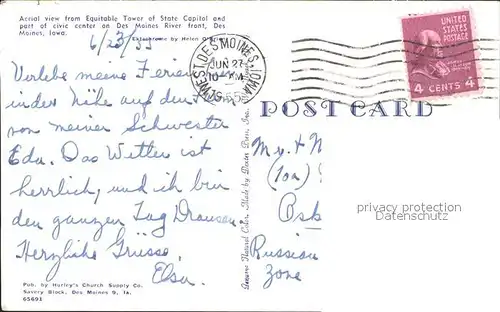 Aerial view from Equitable Tower of State Capitol and
part of civic center on Des Moines River front, Des
Moines, Iowa.
Ektachrome by Helen
6/23/55
WEST DES MOINES, IOWA
JUN 27
10 AM
1955
UNITED
STATES
POSTAGE
4 CENTS 4
POST CARD
Verlebe meine Ferien
in der Nähe auf der
von meiner Schwester
Eda. Das Wetter ist
herrlich, und ich bin
den ganzen Tag Draussen.
Herzliche Grüsse,
Elsa.
Genuine Natural Color. Made by Dexter Press, Inc.
Mr. + M
(10a)
Russian
Zone
privacy protection
Datenschutz
Pub. by Hurley's Church Supply Co.
Savery Block, Des Moines 9, Ia.
65693